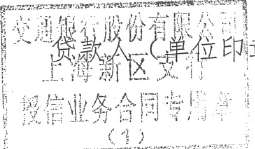 交通银行股份有限公司
贷款人(单位印章
上海新区支行
授信业务合同专用章
(1)